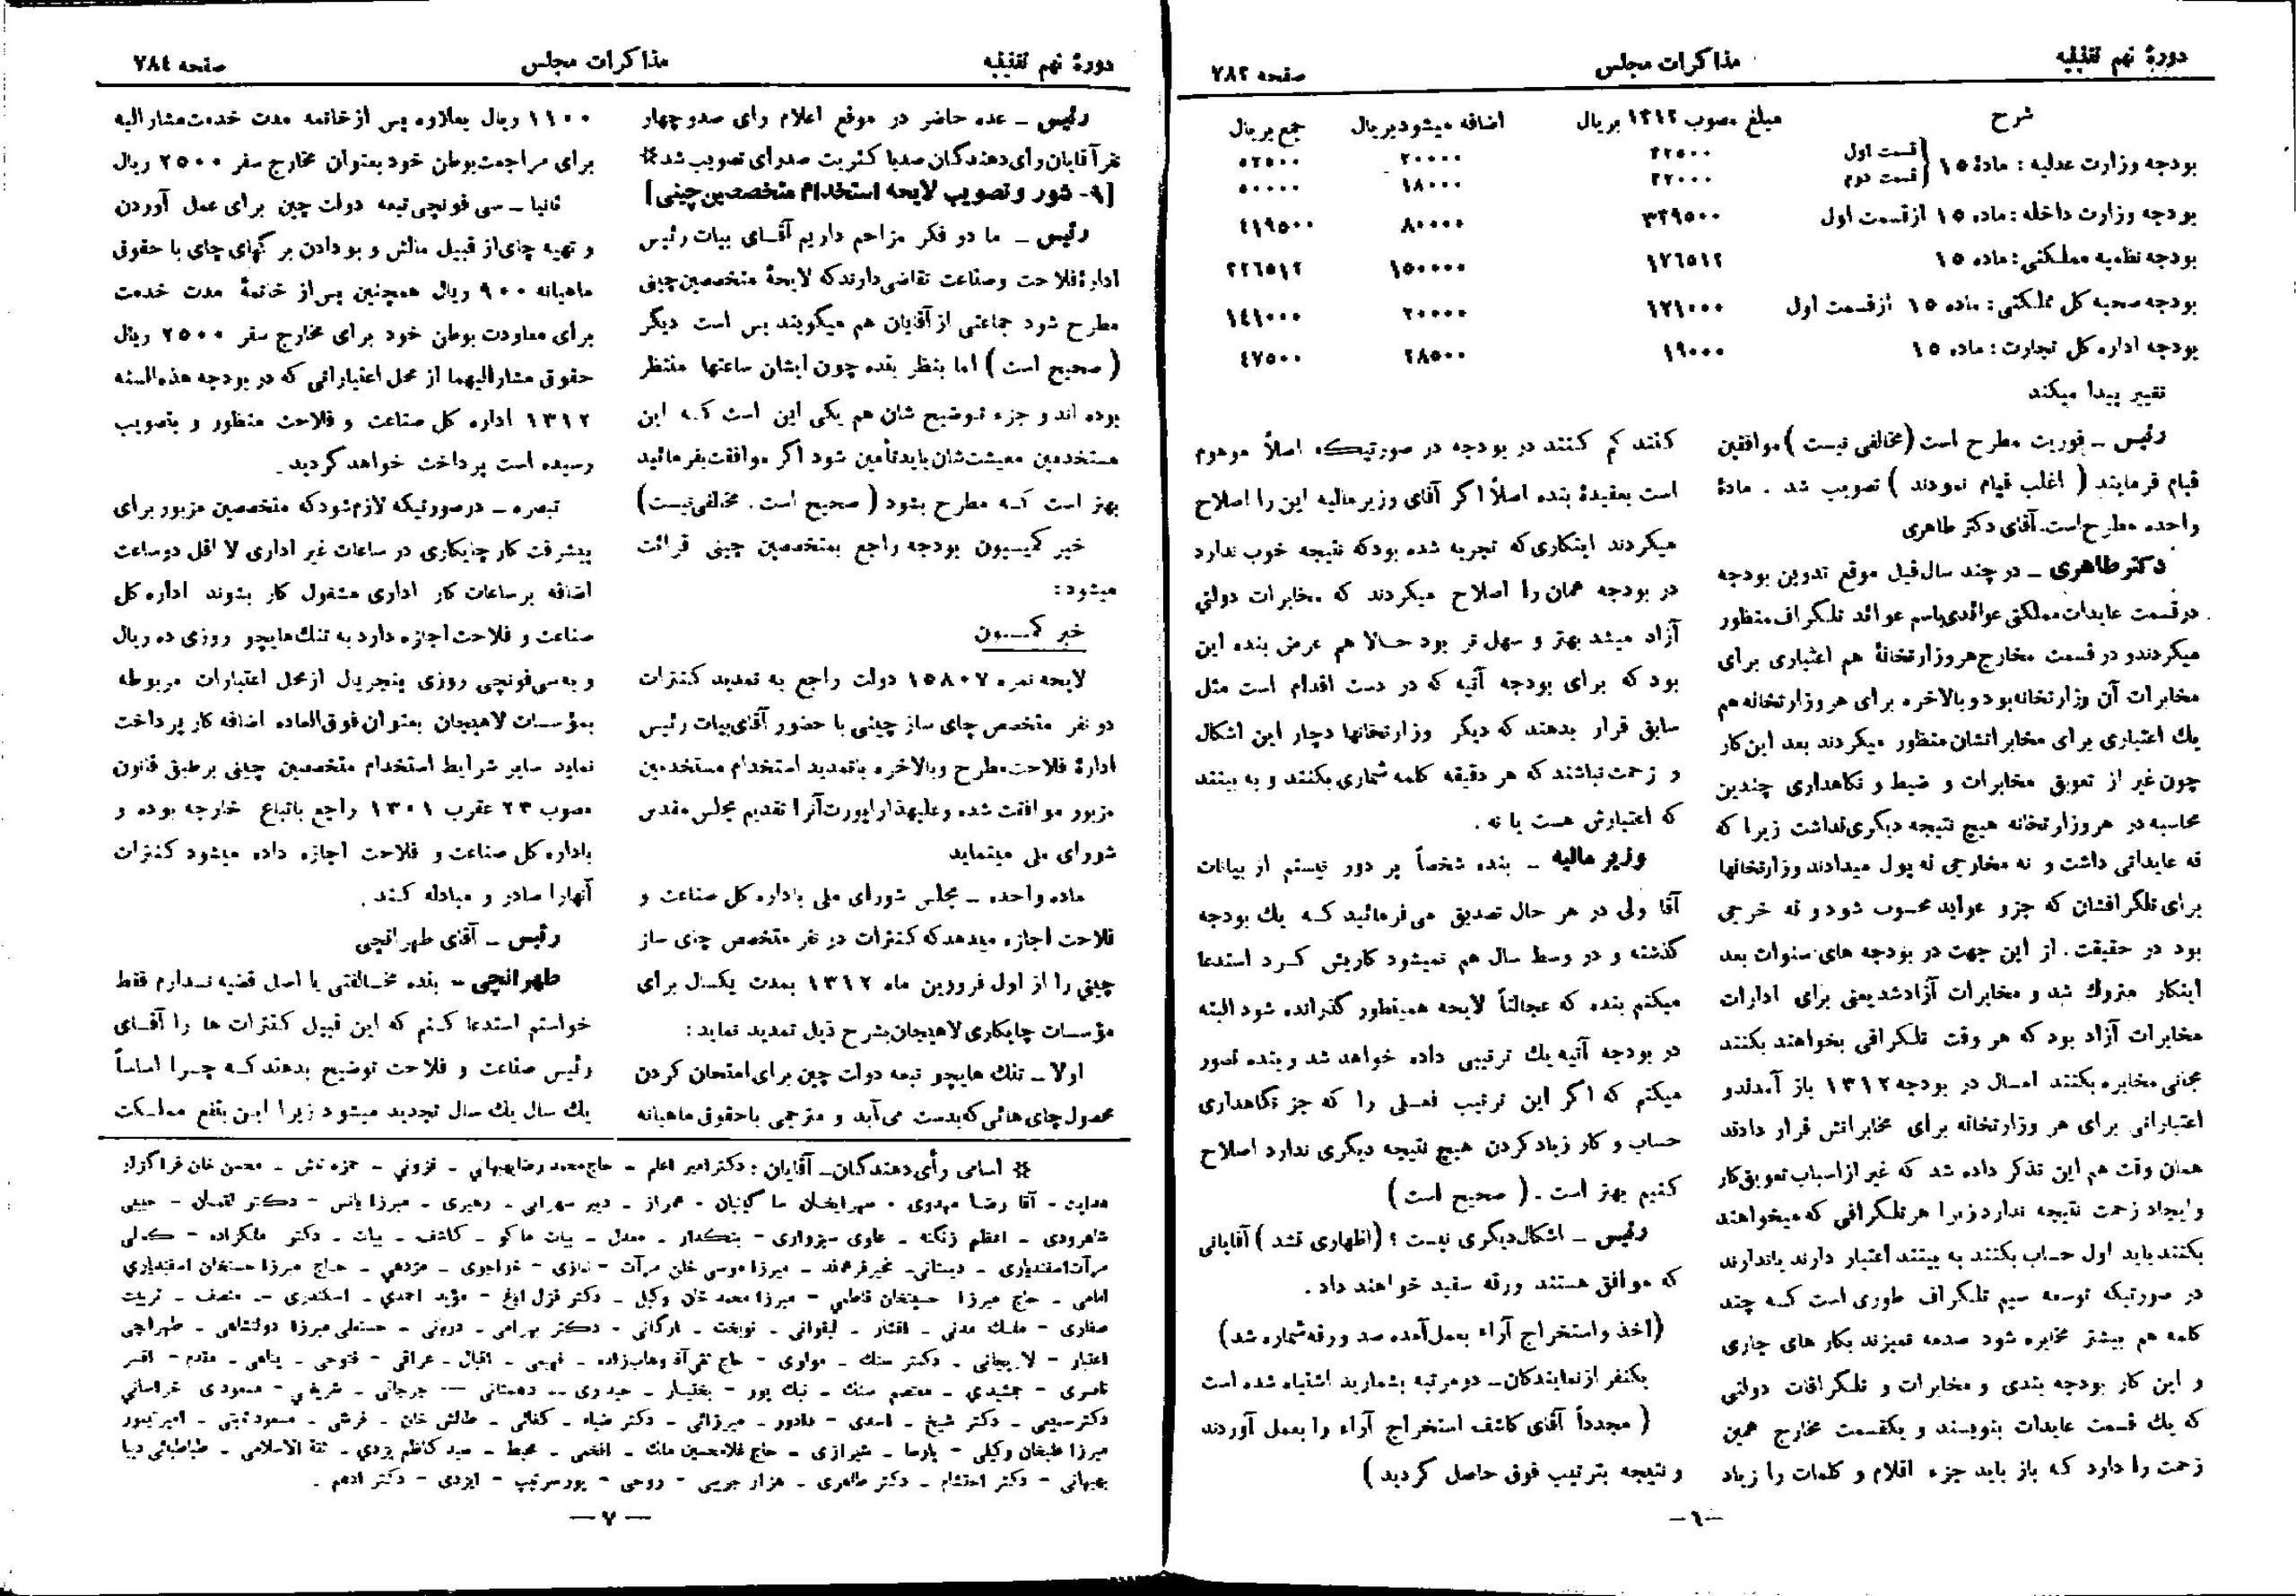 دورهٔ نهم تقنینیه
مذاکرات مجلس
صفحه ۷۸۳
شرح
مبلغ مصوب ۱۳۱۲ بریال
اضافه میشود بریال
جمع بریال
بودجه وزارت عدلیه : مادهٔ ۱۵
قسمت اول
۳۲۵۰۰
۲۰۰۰۰
۵۲۵۰۰
قسمت دوم
۳۲۰۰۰
۱۸۰۰۰
۵۰۰۰۰
بودجه وزارت داخله : ماده ۱۵ از قسمت اول
۳۳۹۵۰۰
۸۰۰۰۰
٤۱۹۵۰۰
بودجه نظمیه مملکتی : ماده ۱۵
۱۷٦۵۱۲
۱۵۰۰۰۰
۳۲٦۵۱۲
بودجه صحیه کل مملکتی : ماده ۱۵ از قسمت اول
۱۲۱۰۰۰
۲۰۰۰۰
۱٤۱۰۰۰
بودجه اداره کل تجارت : ماده ۱۵
۱۹۰۰۰
۲۸۵۰۰
٤۷۵۰۰
تغییر پیدا میکند
رئیس ـ فوریت مطرح است (مخالفی نیست) موافقین
قیام فرمایند ( اغلب قیام نمودند ) تصویب شد . مادهٔ
واحده مطرح است. آقای دکتر طاهری
دکتر طاهری ـ در چند سال قبل موقع تدوین بودجه
در قسمت عایدات مملکتی عوائدی باسم عوائد تلگراف منظور
میکردند و در قسمت مخارج هر وزارتخانهٔ هم اعتباری برای
مخابرات آن وزارتخانه بود و بالاخره برای هر وزارتخانه هم
یك اعتباری برای مخابراتشان منظور میکردند بعد این کار
چون غیر از تعویق مخابرات و ضبط و نگاهداری چندین
محاسبه در هر وزارتخانه هیچ نتیجه دیگری نداشت زیرا که
نه عایداتی داشت و نه مخارجی نه پول میدادند وزارتخانها
برای تلگرافشان که جزو عواید محسوب شود و نه خرجی
بود در حقیقت . از این جهت در بودجه های سنوات بعد
اینکار متروك شد و مخابرات آزاد شد یعنی برای ادارات
مخابرات آزاد بود که هر وقت تلگرافی بخواهند بکنند
مجانی مخابره بکنند امسال در بودجه ۱۳۱۲ باز آمدند و
اعتباراتی برای هر وزارتخانه برای مخابراتش قرار دادند
همان وقت هم این تذکر داده شد که غیر از اسباب تعویق کار
و ایجاد زحمت نتیجه ندارد زیرا هر تلگرافی که میخواهند
بکنند باید اول حساب بکنند به بینند اعتبار دارند یا ندارند
در صورتیکه توسعه سیم تلگراف طوری است کـه چند
کلمه هم بیشتر مخابره شود صدمه نمیزند بکار های جاری
و این کار بودجه بندی و مخابرات و تلگرافات دولتی
که یك قسمت عایدات بنویسند و یکقسمت مخارج همین
زحمت را دارد که باز باید جزء اقلام و کلمات را زیاد
کنند کم کنند در بودجه در صورتیکه اصلاً موهوم
است بعقیدهٔ بنده اصلاً اگر آقای وزیر مالیه این را اصلاح
میکردند اینکاری که تجربه شده بود که نتیجه خوب ندارد
در بودجه همان را اصلاح میکردند که مخابرات دولتی
آزاد میشد بهتر و سهل تر بود حـالا هم عرض بنده این
بود که برای بودجه آتیه که در دست اقدام است مثل
سابق قرار بدهند که دیگر وزارتخانها دچار این اشکال
و زحمت نباشند که هر دقیقه کلمه شماری بکنند و به بینند
که اعتبارش هست یا نه .
وزیر مالیه ـ بنده شخصاً پر دور نیستم از بیانات
آقا ولی در هر حال تصدیق می فرمائید کـه یك بودجه
گذشته و در وسط سال هم نمیشود کاریش کـرد استدعا
میکنم بنده که عجالتاً لایحه همینطور گذرانده شود البته
در بودجه آتیه یك ترتیبی داده خواهد شد و بنده تصور
میکنم که اگر این ترتیب فصلی را که جز نگاهداری
حساب و کار زیاد کردن هیچ نتیجه دیگری ندارد اصلاح
کنیم بهتر است . ( صحیح است )
رئیس ـ اشکال دیگری نیست ؟ (اظهاری نشد) آقایانی
که موافق هستند ورقه سفید خواهند داد .
(اخذ و استخراج آراء بعمل آمده صد ورقه شماره شد)
یکنفر از نمایندگان ـ دو مرتبه بشمارید اشتباه شده است
( مجدداً آقای کاشف استخراج آراء را بعمل آوردند
و نتیجه بترتیب فوق حاصل گردید )
—٦—
دورهٔ نهم تقنینیه
مذاکرات مجلس
صفحه ۷۸٤
رئیس ـ عده حاضر در موقع اعلام رای صد و چهار
نفر آقایان رأی دهندگان صد با کثریت صد رای تصویب شد ※
[۹- شور و تصویب لایحه استخدام متخصصین چینی]
رئیس ـ ما دو فکر مزاحم داریم آقـای بیات رئیس
ادارهٔ فلاحت وصناعت تقاضی دارند که لایحهٔ متخصصین چینی
مطرح شود جماعتی از آقایان هم میگویند بس است دیگر
( صحیح است ) اما بنظر بنده چون ایشان ساعتها منتظر
بوده اند و جزء تـوضیح شان هم یکی این است کـه این
مستخدمین معیشت‌شان باید تأمین شود اگر موافقت بفرمائید
بهتر است کـه مطرح بشود ( صحیح است . مخالفی نیست)
خبر کمیسیون بودجه راجع بمتخصصین چینی قرائت
میشود:
خبر کمیسیون
لایحه نمره ۱۵۸۰۷ دولت راجع به تمدید کنترات
دو نفر متخصص چای ساز چینی با حضور آقای بیات رئیس
ادارهٔ فلاحت مطرح و بالاخره با تمدید استخدام مستخدمین
مزبور موافقت شده و علیهذا راپورت آنرا تقدیم مجلس مقدس
شورای ملی مینماید
ماده واحده ـ مجلس شورای ملی باداره کل صناعت و
فلاحت اجازه میدهد که کنترات دو نفر متخصص چای ساز
چینی را از اول فروردین ماه ۱۳۱۲ بمدت یکسال برای
مؤسسات چایکاری لاهیجان بشرح ذیل تمدید نماید :
اولا ـ تنك هایچو تبعه دولت چین برای امتحان کردن
محصول چای هائی که بدست می‌آید و مترجمی با حقوق ماهیانه
۱۱۰۰ ریال بعلاوه پس از خاتمه مدت خدمت مشارالیه
برای مراجعت بوطن خود بعنوان مخارج سفر ۲۵۰۰ ریال
ثانیا ـ سی فونچی تبعه دولت چین برای عمل آوردن
و تهیه چای از قبیل مالش و بو دادن برگهای چای با حقوق
ماهیانه ۹۰۰ ریال همچنین پس از خاتمهٔ مدت خدمت
برای معاودت بوطن خود برای مخارج سفر ۲۵۰۰ ریال
حقوق مشارالیهما از محل اعتباراتی که در بودجه هذه السنه
۱۳۱۲ اداره کل صناعت و فلاحت منظور و بتصویب
رسیده است پرداخت خواهد گردید .
تبصره ـ در صورتیکه لازم شود که متخصصین مزبور برای
پیشرفت کار چایکاری در ساعات غیر اداری لا اقل دو ساعت
اضافه بر ساعات کار اداری مشغول کار بشوند اداره کل
صناعت و فلاحت اجازه دارد به تنك هایچو روزی ده ریال
و به سی فونچی روزی پنجریال از محل اعتبارات مربوطه
بمؤسسات لاهیجان بعنوان فوق العاده اضافه کار پرداخت
نماید سایر شرایط استخدام متخصصین چینی بر طبق قانون
مصوب ۲۳ عقرب ۱۳۰۱ راجع باتباع خارجه بوده و
باداره کل صناعت و فلاحت اجازه داده میشود کنترات
آنها را صادر و مبادله کند .
رئیس ـ آقای طهرانچی
طهرانچی ـ بنده مخـالفتی با اصل قضیه نـدارم فقط
خواستم استدعا کـنم که این قبیل کنترات ها را آقـای
رئیس صناعت و فلاحت توضیح بدهند کـه چـرا اساساً
یك سال یك سال تجدید میشود زیرا ایـن بنفع مملـکت
※ اسامی رأی دهندگان ـ آقایان : دکتر امیر اعلم ـ حاج محمد رضا بهبهانی ـ قزونی ـ حمزه تاش ـ محسن خان قراگزلو
هدایت ـ آقا رضا مهدوی ـ سهرابخان ساگینیان ـ عمراز ـ دبیر سهرابی ـ رهبری ـ میرزا یانس ـ دکتر لقمان ـ حبیبی
شاهرودی ـ اعظم زنگنه ـ علوی سبزواری ـ بنکدار ـ معدل ـ بیات ماکو ـ کاشف ـ بیات ـ دکتر ملکزاده ـ کمالی
مرآت اسفندیاری ـ دبستانی ـ مخبر فرهمند ـ میرزا موسی خان مرآت ـ نمازی ـ خواجوی ـ مژدهی ـ حاج میرزا حسنخان اسفندیاری
امامی ـ حاج میرزا حسینخان فاطمی ـ میرزا محمد خان وکیل ـ دکتر قزل ایاغ ـ مؤید احمدی ـ اسکندری ـ منصف ـ تربیت
صفاری ـ ملك مدنی ـ افشار ـ لیقوانی ـ نوبخت ـ ارگانی ـ دکتر بهرامی ـ دروتی ـ حسنعلی میرزا دولتشاهی ـ طهرانچی
اعتبار ـ لاریجانی ـ دکتر سنك ـ مولوی ـ حاج تقی آقا وهاب زاده ـ فهیمی ـ اقبال ـ عراقی ـ فتوحی ـ پناهی ـ مقدم ـ افسر
ناصری ـ جمشیدی ـ معتصم سنك ـ نیك پور ـ بختیار ـ حیدری ـ دهستانی ـ جرجانی ـ شریفی ـ مسعودی خراسانی
دکتر سمیعی ـ دکتر شیخ ـ اسدی ـ دادور ـ میرزائی ـ دکتر ضیاء ـ کفائی ـ طالش خان ـ فرشی ـ مسعود ثابتی ـ امیر تیمور
میرزا علیخان وکیلی ـ پارسا ـ شیرازی ـ حاج غلامحسین ملك ـ افخمی ـ محیط ـ سید کاظم یزدی ـ ثقة الاسلامی ـ طباطبائی دیبا
بهبهانی ـ دکتر احتشام ـ دکتر طاهری ـ هزار جریبی ـ روحی ـ پور سرتیپ ـ ایزدی ـ دکتر ادهم .
— ۷ —